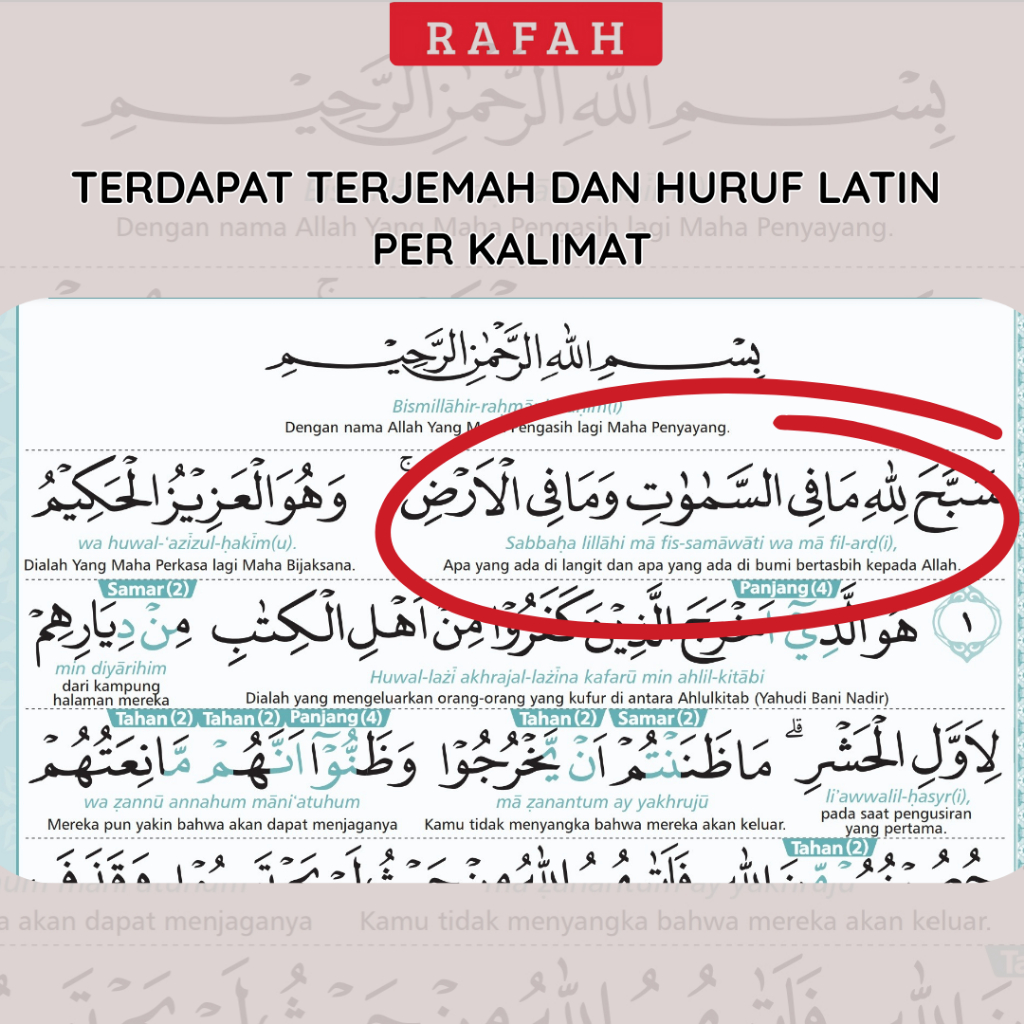 RAFAH
بِسْمِ اللّٰهِ الرَّحْمٰنِ الرَّحِيْمِ
TERDAPAT TERJEMAH DAN HURUF LATIN
PER KALIMAT
Dengan nama Allah Yang Maha Pengasih lagi Maha Penyayang.
بِسْمِ اللّٰهِ الرَّحْمٰنِ الرَّحِيْمِ
Bismillāhir-
Dengan nama Allah Yang Pengasih lagi Maha Penyayang.
سَبَّحَ لِلّٰهِ مَا فِى السَّمٰوٰتِ وَمَا فِى الْاَرْضِۚ وَهُوَ الْعَزِيْزُ الْحَكِيْمُ
Sabbaḥa lillāhi mā fis-samāwāti wa mā fil-arḍ(i),
Apa yang ada di langit dan apa yang ada di bumi bertasbih kepada Allah.
wa huwal-‘azīzul-ḥakīm(u).
Dialah Yang Maha Perkasa lagi Maha Bijaksana.
Panjang(4) Samar(2)
١ هُوَ الَّذِيْٓ اَخْرَجَ الَّذِيْنَ كَفَرُوْا مِنْ اَهْلِ الْكِتٰبِ مِنْ دِيَارِهِمْ
Huwal-lażī akhrajal-lażīna kafarū min ahlil-kitābi
Dialah yang mengeluarkan orang-orang yang kufur di antara Ahlulkitab (Yahudi Bani Nadir)
min diyārihim
dari kampung
halaman mereka
Samar(2) Tahan(2) Panjang(4) Tahan(2) Tahan(2)
لِاَوَّلِ الْحَشْرِۗ مَا ظَنَنْتُمْ اَنْ يَّخْرُجُوْا وَظَنُّوْٓا اَنَّهُمْ مَّانِعَتُهُمْ
li'awwalil-ḥasyr(i),
pada saat pengusiran
yang pertama.
mā ẓanantum ay yakhrujū
Kamu tidak menyangka bahwa mereka akan keluar.
wa ẓannū annahum māni‘atuhum
Mereka pun yakin bahwa akan dapat menjaganya
Tahan(2)
akan dapat menjaganya Kamu tidak menyangka bahwa mereka akan keluar.